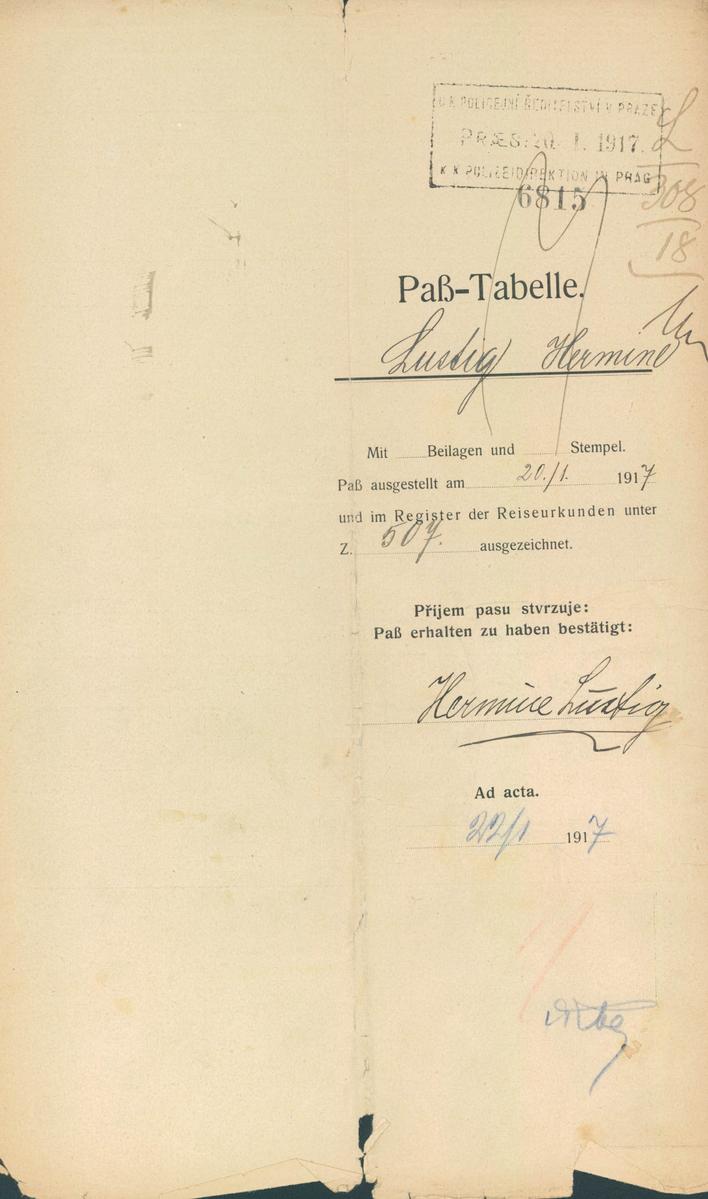 C. K. POLICEJNÍ ŘEDITELSTVÍ V PRAZE
PRÆS: 20. I. 1917.
K. K. POLIZEIDIREKTION IN PRAG
6815
L
308
18
Paß-Tabelle.
Lustig Hermine
Mit Beilagen und Stempel.
Paß ausgestellt am 20./1. 1917
und im Register der Reiseurkunden unter
Z. 507. ausgezeichnet.
Příjem pasu stvrzuje:
Paß erhalten zu haben bestätigt:
Hermine Lustig
Ad acta.
22/1 1917